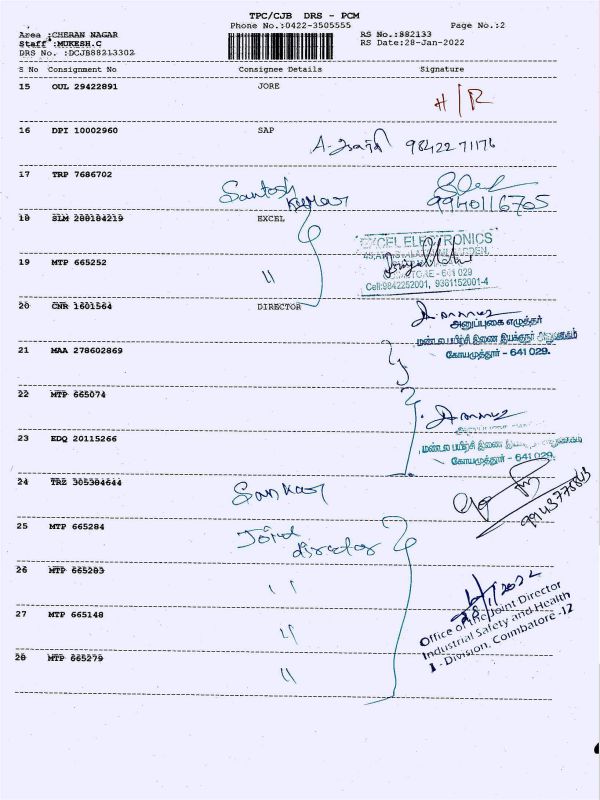 TPC/CJB DRS - PCM
Phone No.:0422-3505555 Page No.:2
Area :CHERAN NAGAR RS No.:882133
Staff :MUKESH.C RS Date:28-Jan-2022
DRS No. :DCJB88213302
S No Consignment No Consignee Details Signature
15 OUL 29422891 JORE
H/R
16 DPI 10002960 SAP
98422 71176
17 TRP 7686702
Santosh Kumar
9940116705
18 SLM 288184219 EXCEL
EXCEL ELECTRONICS
19 MTP 665252 "
641 029
Cell:9842252001, 9361152001-4
20 CNR 1601564 DIRECTOR
அனுப்புகை எழுத்தர்
மண்டல பயிற்சி இணை இயக்குநர் அலுவலகம்
கோயமுத்தூர் - 641 029.
21 MAA 278602869
22 MTP 665074
23 EDQ 20115266
மண்டல பயிற்சி இணை
கோயமுத்தூர் - 641 029.
24 TRZ 305384644 Sankar
25 MTP 665284 Joint director
26 MTP 665283 "
27 MTP 665148 "
Office of the Joint Director
Industrial Safety and Health
I - Division, Coimbatore -12
28 MTP 665279 "